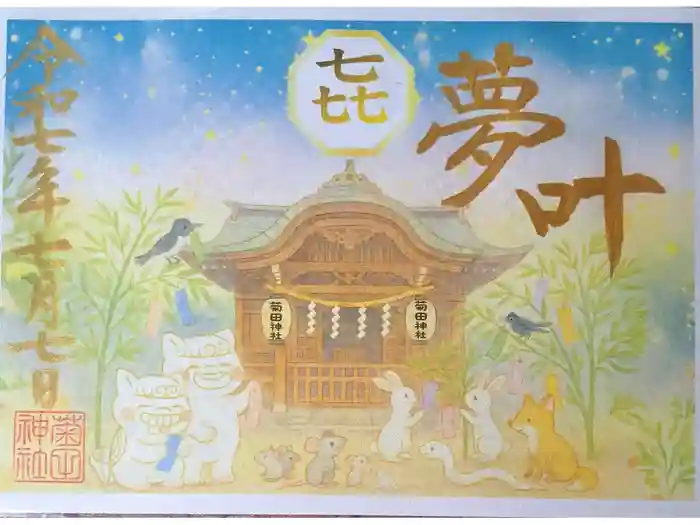 夢叶
㐂
令和七年七月七日
菊田神社
菊田神社
菊田神社